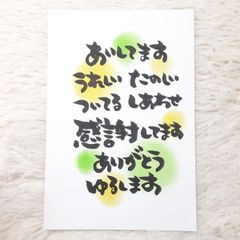 あいしてます
うれしい たのしい
ついてる しあわせ
感謝してます
ありがとう
ゆるします